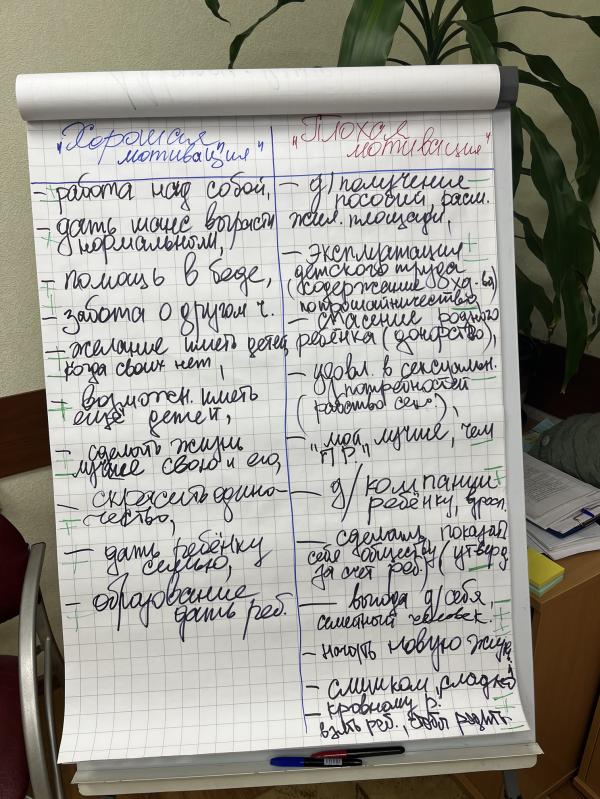 "Хорошая
мотивация"
- работа над собой,
- дать шанс вырасти
нормальным,
- помощь в беде,
- забота о другом ч.
- желание иметь детей,
когда своих нет,
- возможн. иметь
ещё детей,
- сделать жизнь
лучше свою и его,
- скрасить одино-
чество,
- дать ребёнку
семью,
- образование
дать реб.
"Плохая
мотивация"
- д/получение
пособий, расш.
жил. площади,
- эксплуатация
детского труда
(содержание хоз-ва)
попрошайничество,
- спасение родного
ребёнка (донорство),
- удовл. в сексуальн.
потребностей
(рабство секс.),
- "мой лучше, чем
ПР"
- д/компании
ребёнку, взросл.
- сделать, показать
себя обществу (утверд.
за счёт реб.)
- выгода д/себя,
семейный человек.
- начать новую жизнь,
- слишком "сладко"
кровному р.
- взять реб., чтобы родить